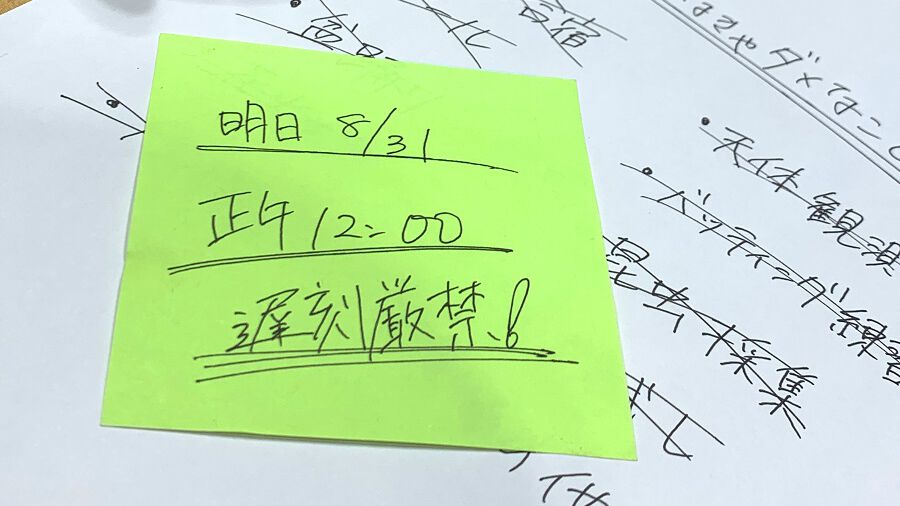 明日 8/31
正午 12:00
遅刻厳禁!
合宿
きゃダメなこ
天体観測
バッティング練習
昆虫採集